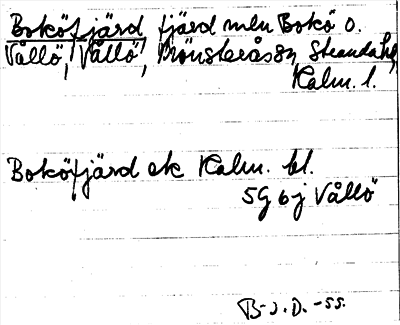 Boköfjärd fjärd mln Bokö o.
Vållö, Vållö, Mönsterås sn, Stranda hd,
Kalm. l.
Boköfjärd ek Kalm. bl.
5G 6j Vållö
B-J. D. -55.